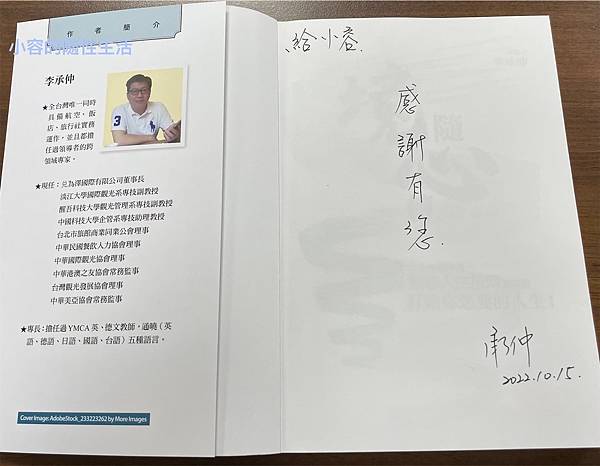 作者簡介
小容的隨性生活
李承仲
★全台灣唯一同時
具備航空、飯
店、旅行社實務
運作,並且都擔
任過領導者的跨
領域專家。
★現任:兌為澤國際有限公司董事長
淡江大學國際觀光系專技副教授
醒吾科技大學觀光管理系專技副教授
中國科技大學企管系專技助理教授
台北市旅館商業同業公會理事
中華民國餐飲人力協會理事
中華國際觀光協會理事
中華港澳之友協會常務監事
台灣觀光發展協會理事
中華美亞協會常務監事
★專長:擔任過YMCA英、德文教師。通曉(英
語、德語、日語、國語、台語)五種語言。
Cover Image: AdobeStock_233223262 by More Images
給小容
感謝有您.
承仲
2022.10.15.